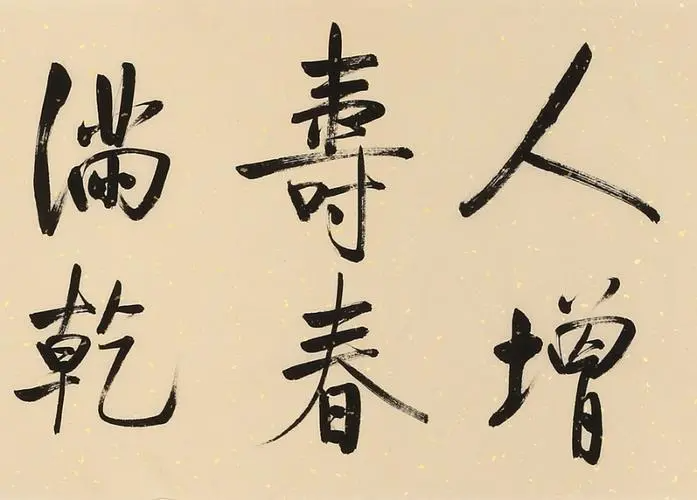 人增
壽春
滿乾